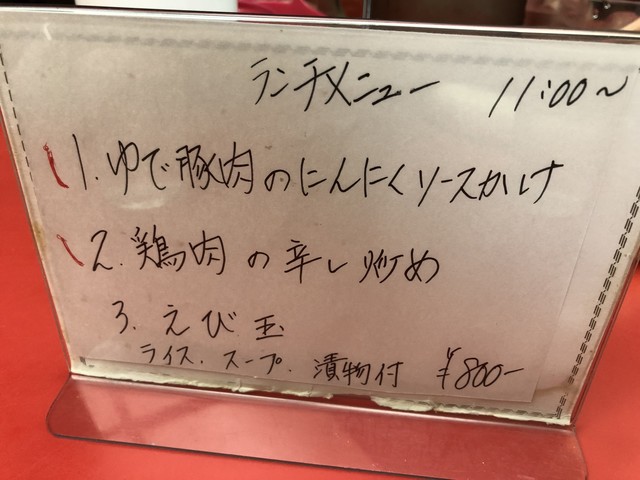 ランチメニュー 11:00～
1. ゆで豚肉のにんにくソースかけ
2. 鶏肉の辛し炒め
3. えび玉
ライス、スープ、漬物付 ¥800-